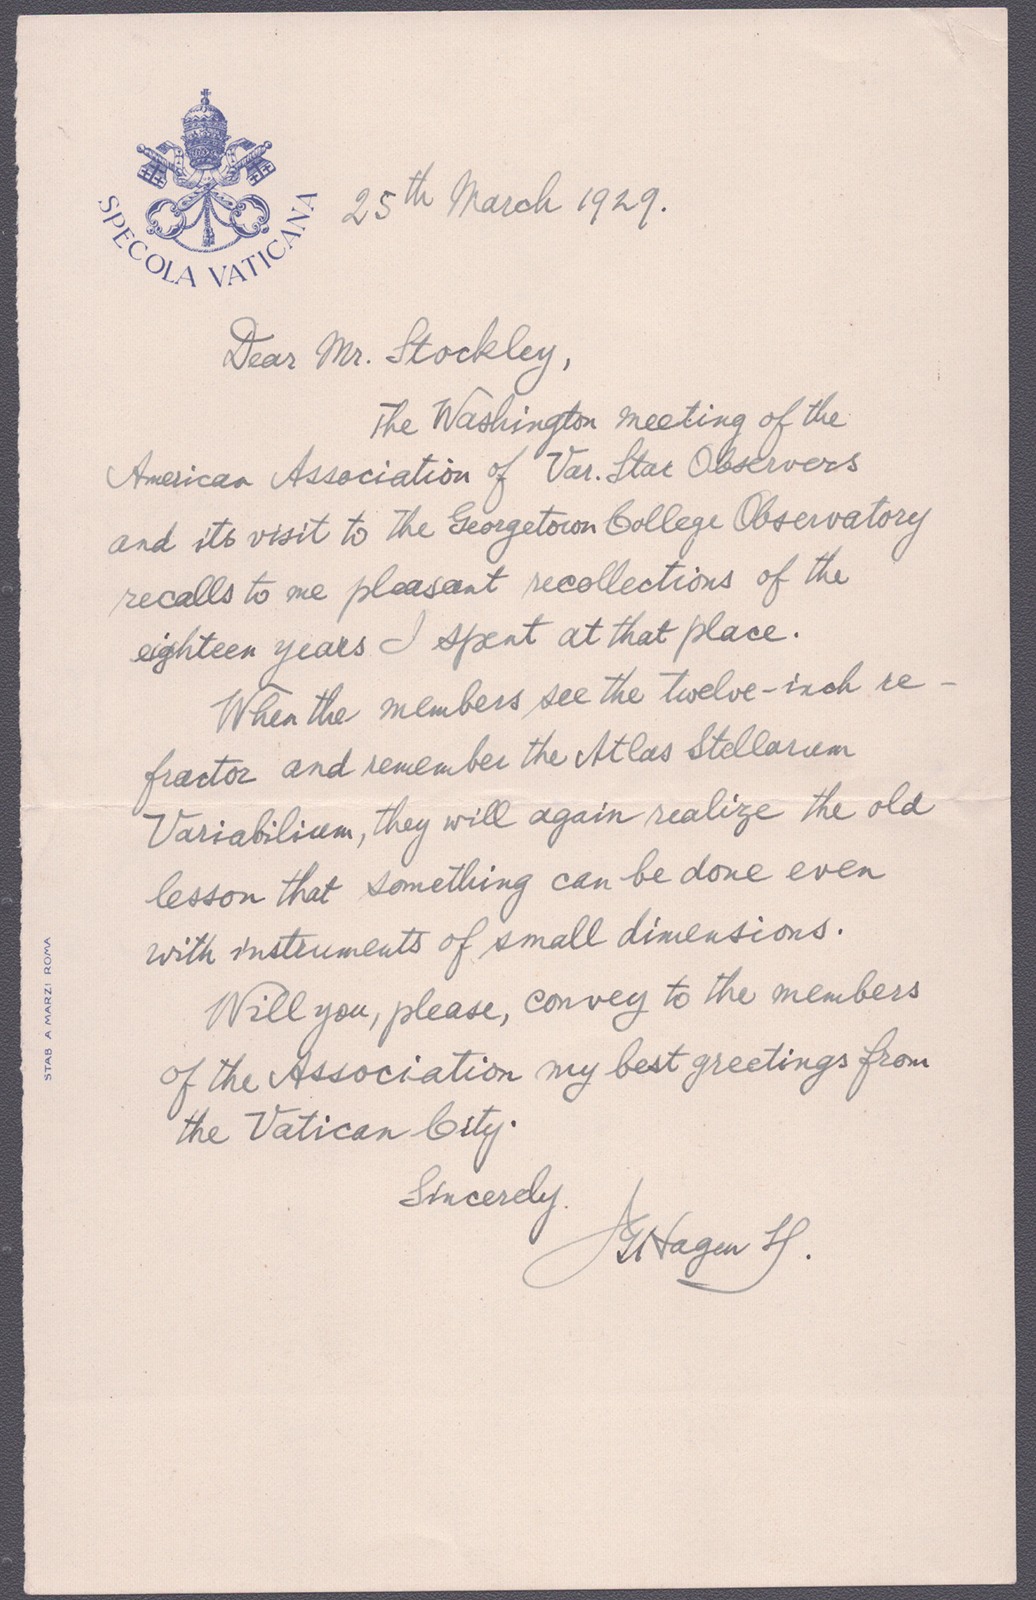 SPECOLA VATICANA
25th March 1929.
Dear Mr. Stockley,
The Washington meeting of the
American Association of Var. Star Observers
and its visit to the Georgetown College Observatory
recalls to me pleasant recollections of the
eighteen years I spent at that place.
When the members see the twelve-inch re-
fractor and remember the Atlas Stellarum
Variabilium, they will again realize the old
lesson that something can be done even
with instruments of small dimensions.
Will you, please, convey to the members
of the Association my best greetings from
the Vatican City.
Sincerely.
JGHagen SJ.
STAB A MARZI ROMA